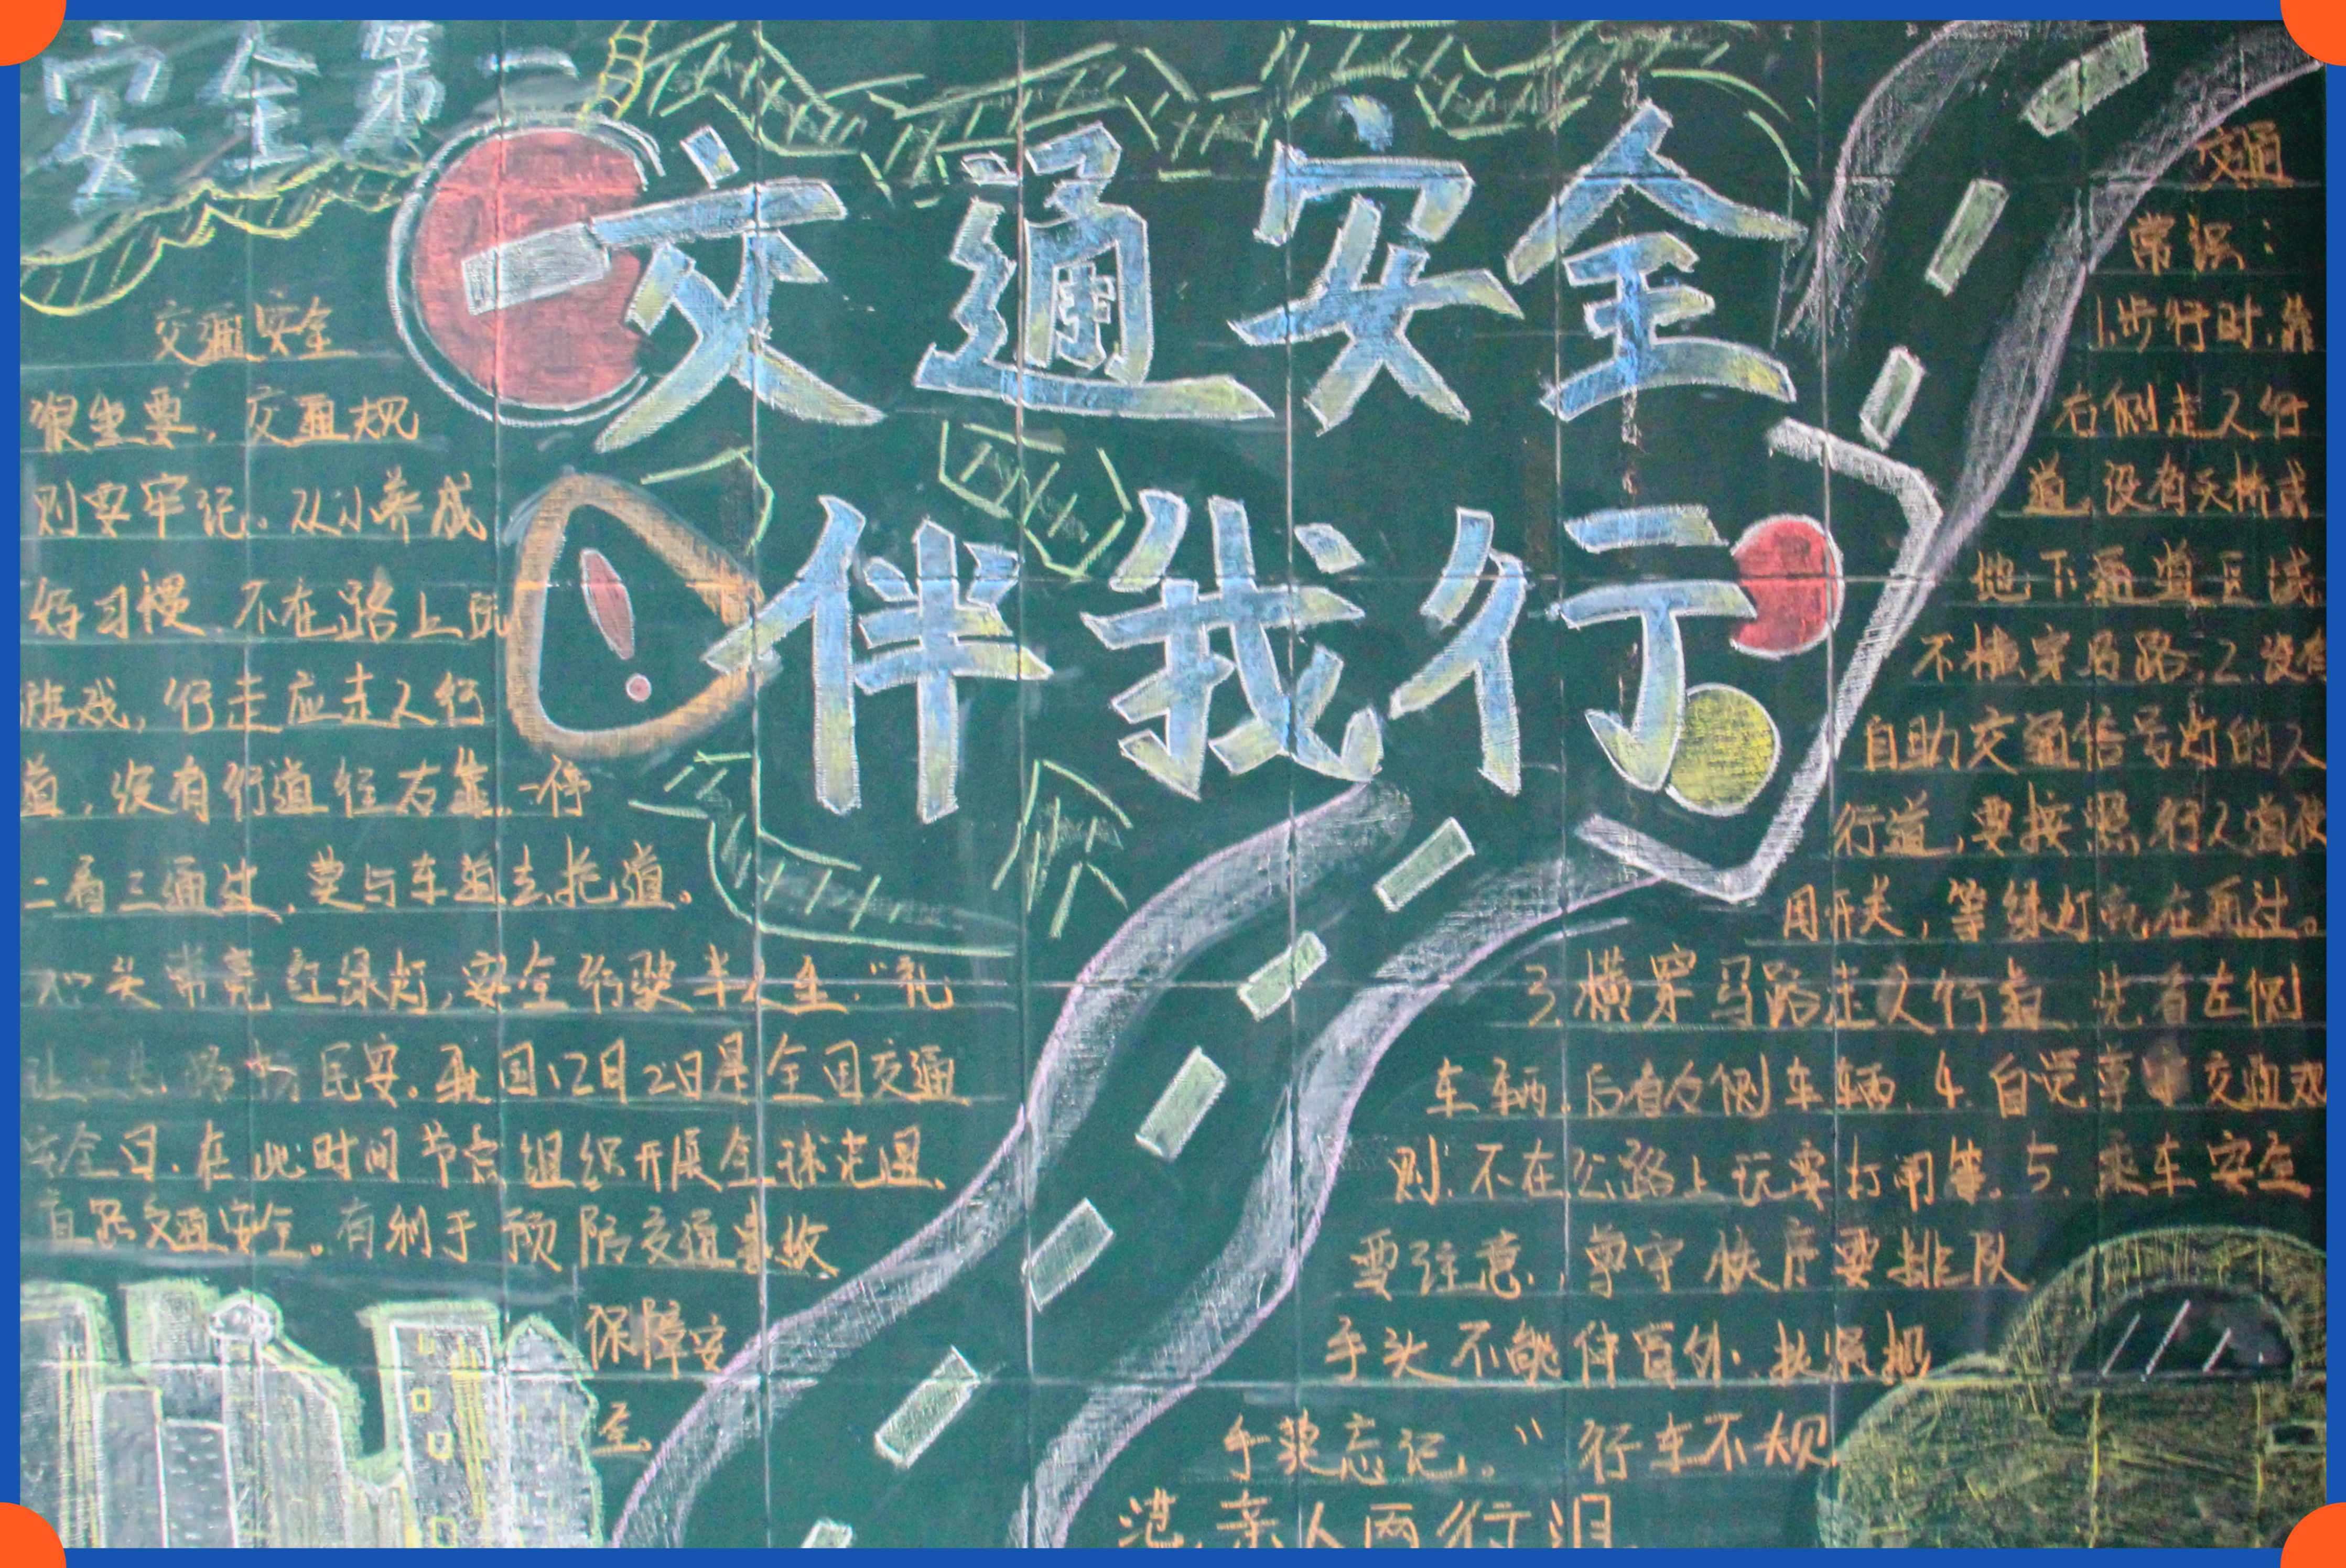 安全第一
交通安全
伴我行
交通安全
很重要，交通规
则要牢记。从小养成
好习惯，不在路上玩
游戏，行走应走人行
道，没有行道往右靠，一停
二看三通过，莫与车道去抢道。
头常亮红绿灯，安全行驶半人生。"礼
民安。我国12月2日是全国交通
安全日，在此时间节点组织开展
交通安全。有利于预防交通事故
保障安
全
交通
常识：
1.步行时，靠
右侧走人行
道，没有天桥或
地下通道区域
不横穿马路，2.没有
自助交通信号灯的人
行道，要按照行人道使
用开关，等绿灯亮在通过。
3.横穿马路走人行道 先看左侧
车辆，后看右侧车辆，4.自觉尊守交通规
则，不在公路上玩耍打闹等，5.乘车安全
要注意，尊守秩序要排队
手头不能伸窗外，扶紧把
手莫忘记。"行车不规
范，亲人两行泪